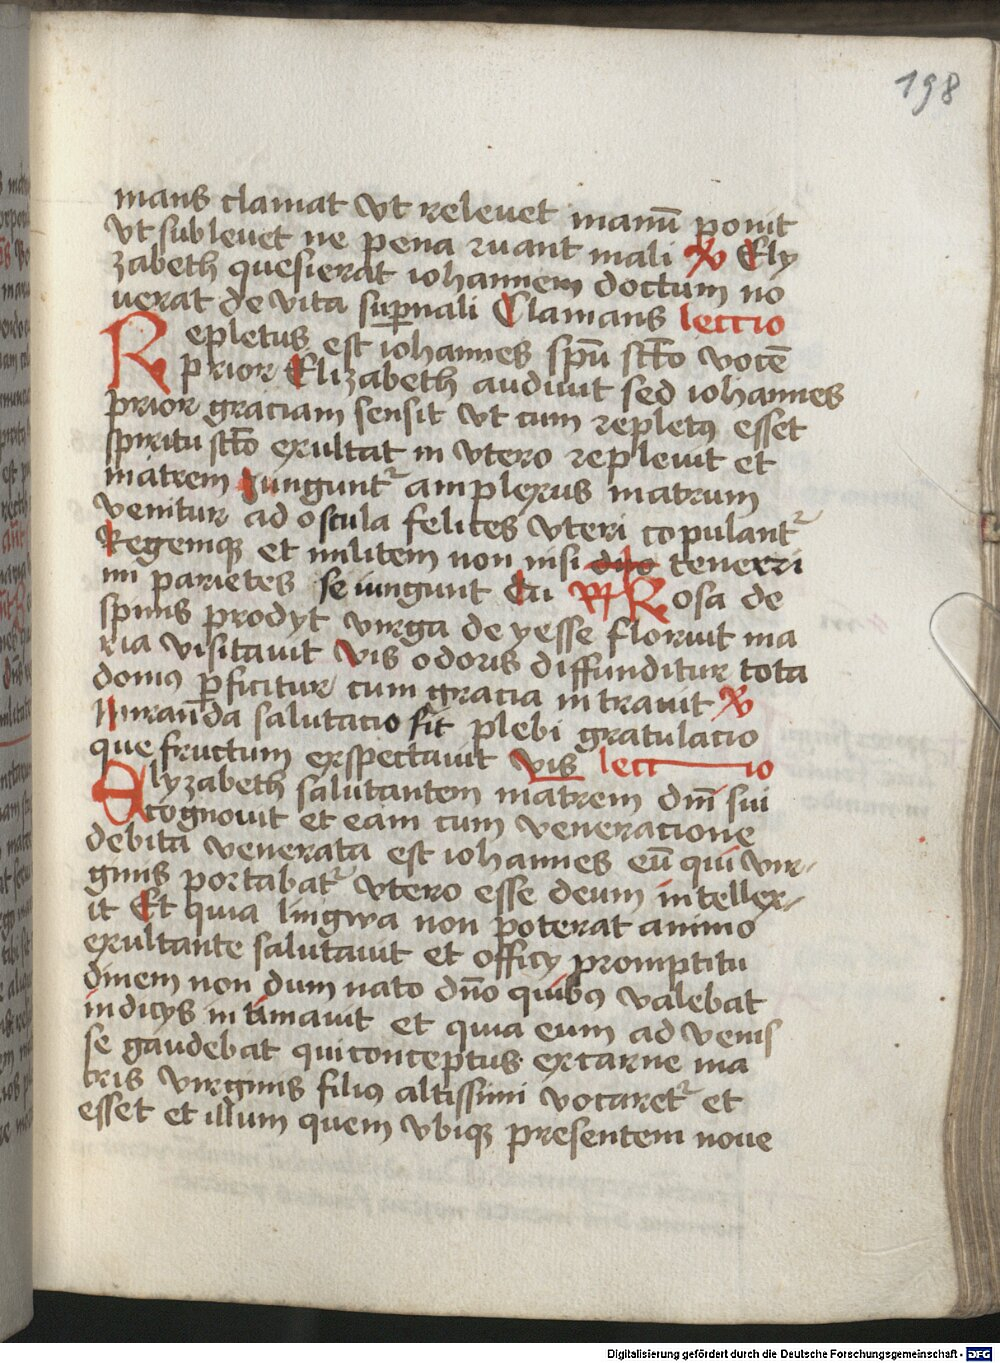 198
mans clamat vt releuet manū ponit
vt subleuet ne pena ruant mali ℣ Ely
zabeth quesierat iohannem doctum no
uerat de vita sup̄nali Clamans lectio
Repletus est iohannes spū scto vocē
prior Elizabeth audiuit sed iohannes
prior graciam sensit vt cum repletꝰ esset
spiritu scto exultat in vtero repleuit et
matrem Iungunt᷑ amplexus matrum
venitur ad oscula felices vteri copulant᷑
Regemqꝫ et militem non nisi tenerri
mi parietes se iungunt Eu ℟ Rosa de
spinis prodyt virga de yesse floruit ma
ria visitauit Vis odoris diffunditur tota
domꝰ ꝑficitur cum gracia intrauit ℣
Miranda salutacio fit plebi gratulacio
que fructum exspectauit vis lectio
Elyzabeth salutantem matrem dm̄ sui
cognouit et eam cum veneracione
debita venerata est iohannes eū qui vir-
ginis portabat᷑ vtero esse deum intellex-
it Et quia lingwa non poterat animo
exultante salutauit et officy promptitu
dinem non dum nato dn̄o quibꝰ valebat
indicys in timauit et quia eum ad venis
se gaudebat qui conceptus ex carne ma
tris virginis filiꝰ altissimi vocaret᷑ et
esset et illum quem vbiqꝫ presentem noue
Digitalisierung gefördert durch die Deutsche Forschungsgemeinschaft - DFG